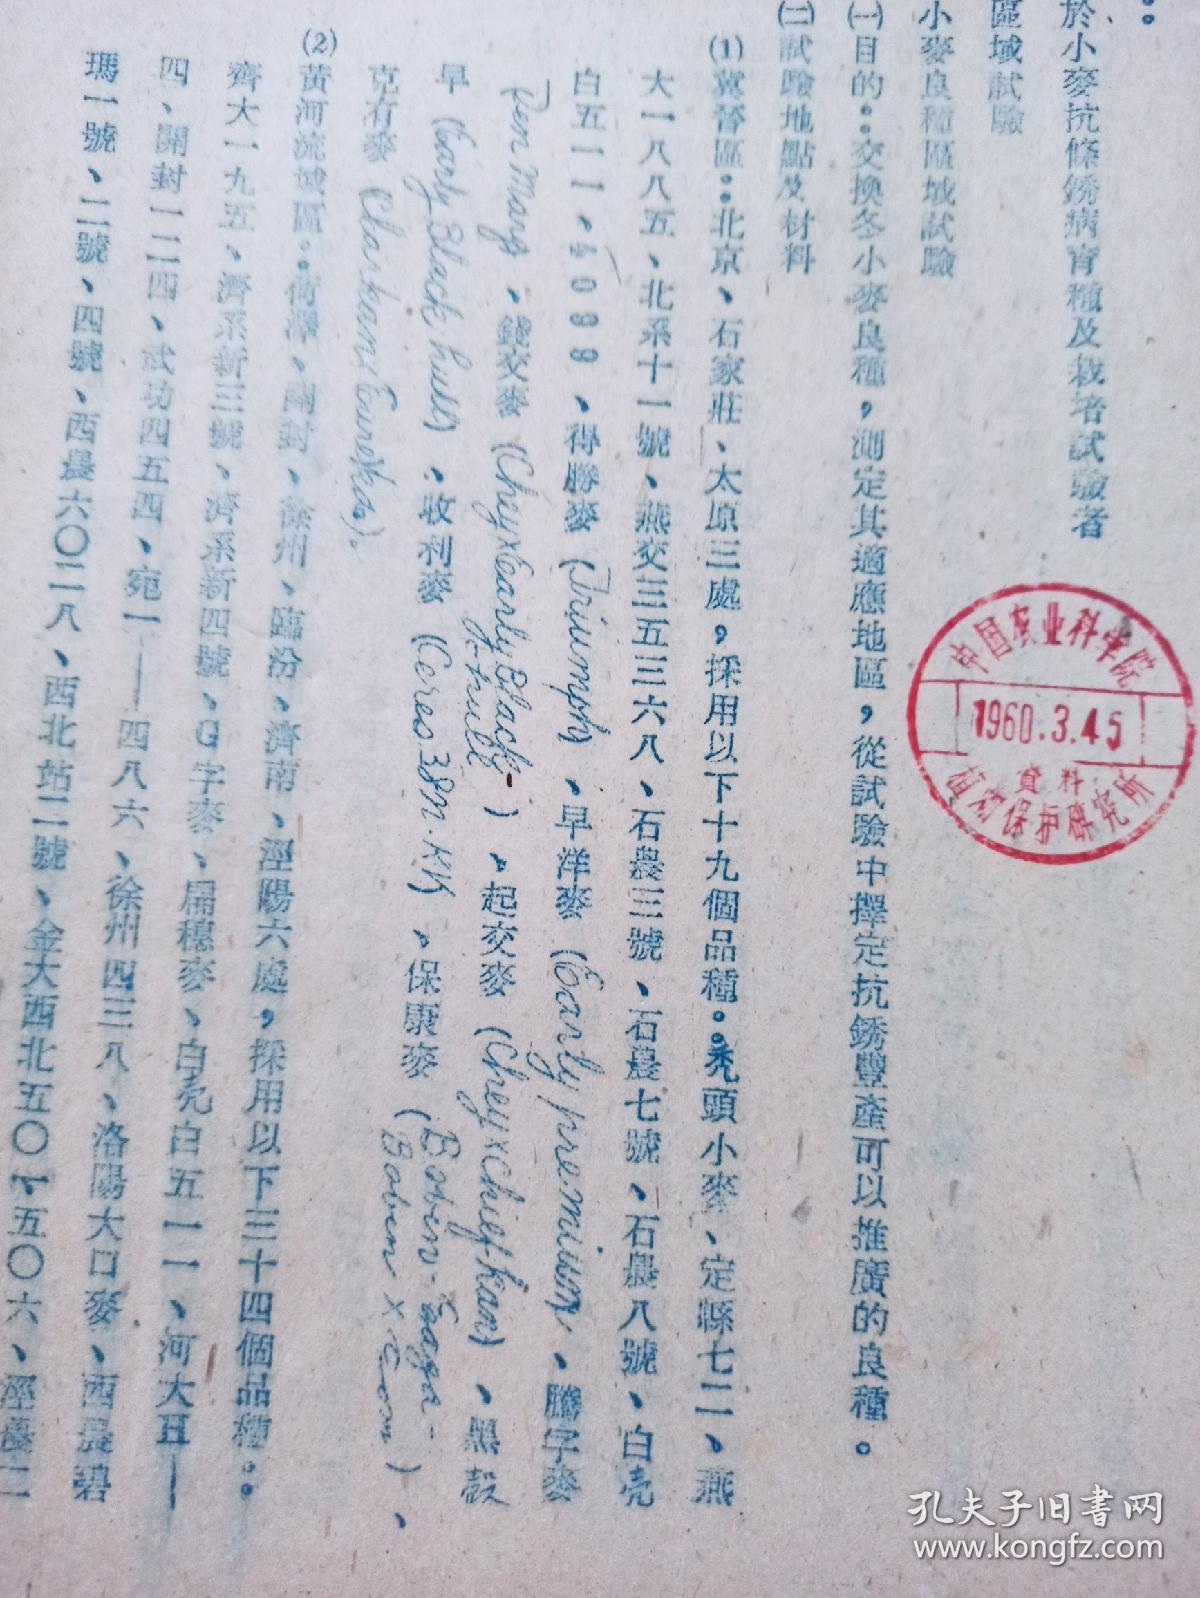 於小麥抗條銹病育種及栽培試驗者
區域試驗
小麥良種區域試驗
㈠目的:交換冬小麥良種,測定其適應地區,從試驗中擇定抗銹豐產可以推廣的良種。
㈡試驗地點及材料
(1)冀晉區:北京、石家莊、太原三處,採用以下十九個品種:禿頭小麥、定縣七二、燕
大一八八五、北系十一號、燕交三五三六八、石農三號、石農七號、石農八號、白壳
白五一一、4099、得勝麥(Triumph)、早洋麥(Early premium)、騰字麥
、錢交麥(Chey×Early Black-hull)、起交麥(Chey×Chiefkan)、黑殼
早(Early Black hull)、收利麥、保康麥、
克有麥(Clarkan×Eureka)。
(2)黃河流域區:荷澤、開封、徐州、臨汾、濟南、涇陽六處,採用以下三十四個品種:
齊大一九五、濟系新三號、濟系新四號、G字麥、扁穗麥、白壳白五一一、河大日—
四、開封一二四、武功四五四、宛一——四八六、徐州四三八、洛陽大口麥、西農碧
瑪一號、二號、四號、西農六〇二八、西北站二號、金大西北五〇一、五〇六、涇農二
中国农业科学院
1960.3.45
資料
植物保护研究所
孔夫子旧书网
www.kongfz.com